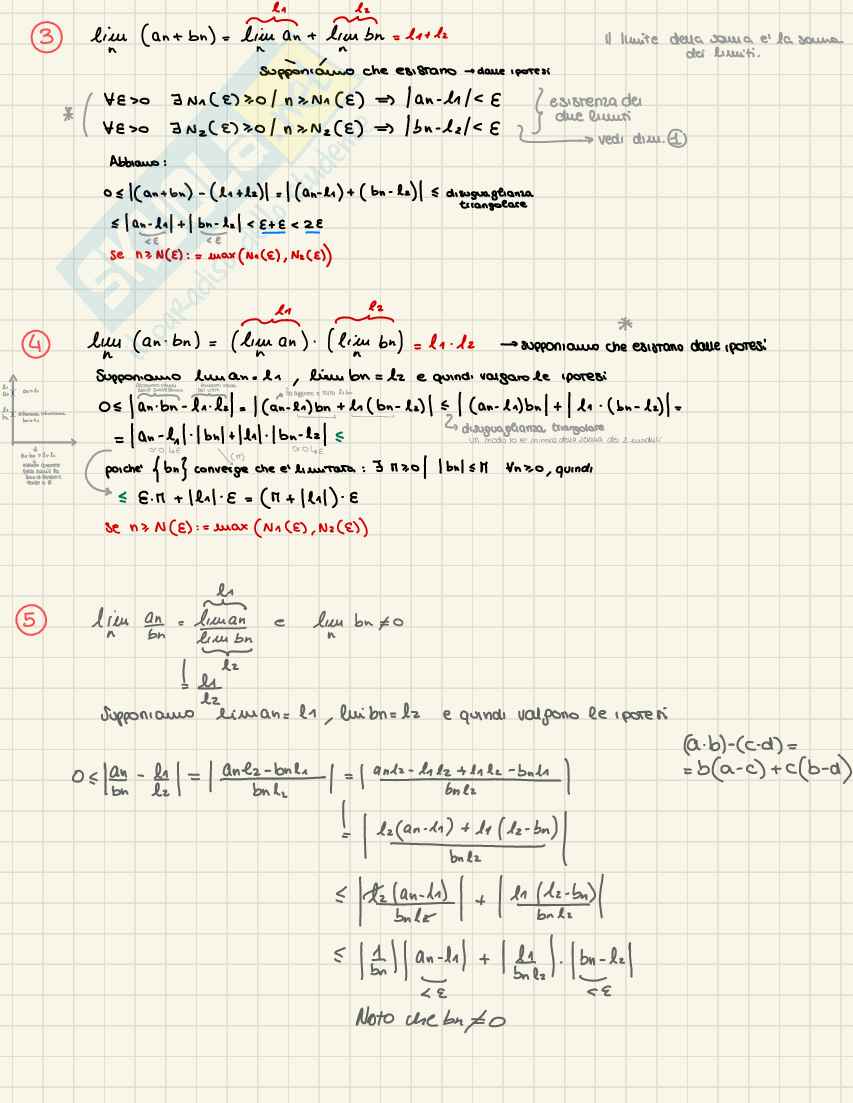 ③ lim n (an + bn) = lim n an + lim n bn = l1 + l2
l1 l2
il limite della somma e' la somma
dei limiti.
Supponiamo che esistano → dalle ipotesi
* ∀ε>0 ∃ N1(ε) ≥ 0 / n ≥ N1(ε) ⟹ |an - l1| < ε
∀ε>0 ∃ N2(ε) ≥ 0 / n ≥ N2(ε) ⟹ |bn - l2| < ε
esistenza dei
due limiti
→ vedi dim. ①
Abbiamo:
0 ≤ |(an + bn) - (l1 + l2)| = |(an - l1) + (bn - l2)| ≤ disuguaglianza
triangolare
≤ |an - l1| + |bn - l2| < ε+ε < 2ε
<ε <ε
se n ≥ N(ε) := max(N1(ε), N2(ε))
l1 l2
*
④ lim n (an · bn) = (lim n an) · (lim n bn) = l1 · l2 → supponiamo che esistano dalle ipotesi
Supponiamo lim an = l1 , lim bn = l2 e quindi valgaro le ipotesi
0 ≤ |an · bn - l1 · l2| = |(an - l1)bn + l1(bn - l2)| ≤ |(an - l1)bn| + |l1 · (bn - l2)| =
= |an - l1| · |bn| + |l1| · |bn - l2| ≤
disuguaglianza triangolare
(M)
poiche' {bn} converge che e' limitata : ∃ M ≥ 0 | |bn| ≤ M ∀n ≥ 0, quindi
≤ ε·M + |l1| · ε = (M + |l1|) · ε
se n ≥ N(ε) := max (N1(ε), N2(ε))
⑤ lim n an/bn = lim an/lim bn e lim n bn ≠ 0
l1
l2
= l1/l2
Supponiamo lim an = l1 , lim bn = l2 e quindi valgono le ipotesi
(a·b)-(c·d) =
= b(a-c) + c(b-d)
0 ≤ |an/bn - l1/l2| = |(an l2 - bn l1)/(bn l2)| = |(an l2 - l1 l2 + l1 l2 - bn l1)/(bn l2)|
= |(l2(an - l1) + l1(l2 - bn))/(bn l2)|
≤ |l2(an - l1)/(bn l2)| + |l1(l2 - bn)/(bn l2)|
≤ |1/bn| |an - l1| + |l1/(bn l2)| · |bn - l2|
<ε <ε
Noto che bn ≠ 0